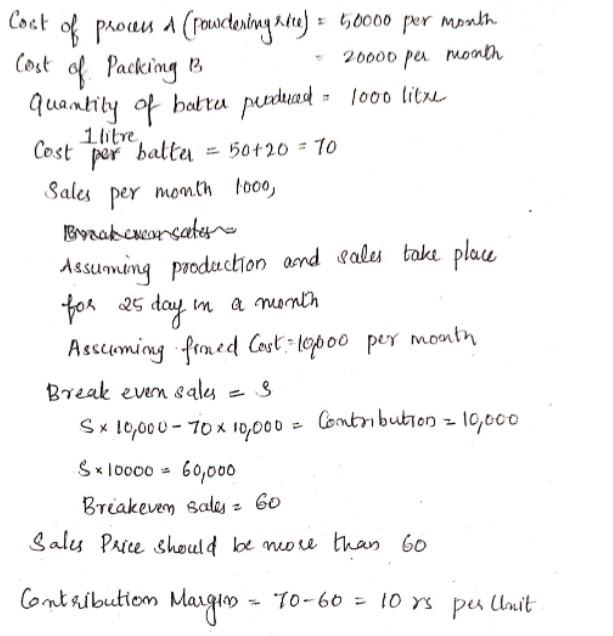 Cost of process A (powdering rice) = 50000 per month
Cost of Packing B = 20000 per month
Quantity of batter produced = 1000 litre
Cost per 1 litre batter = 50+20 = 70
Sales per month 1000,
Break even sales =
Assuming production and sales take place
for 25 day in a month
Assuming fixed Cost = 10,000 per month
Break even sales = S
S x 10,000 - 70 x 10,000 = Contribution = 10,000
S x 10000 = 60,000
Breakeven sales = 60
Sales Price should be more than 60
Contribution Margin = 70-60 = 10 rs per Unit